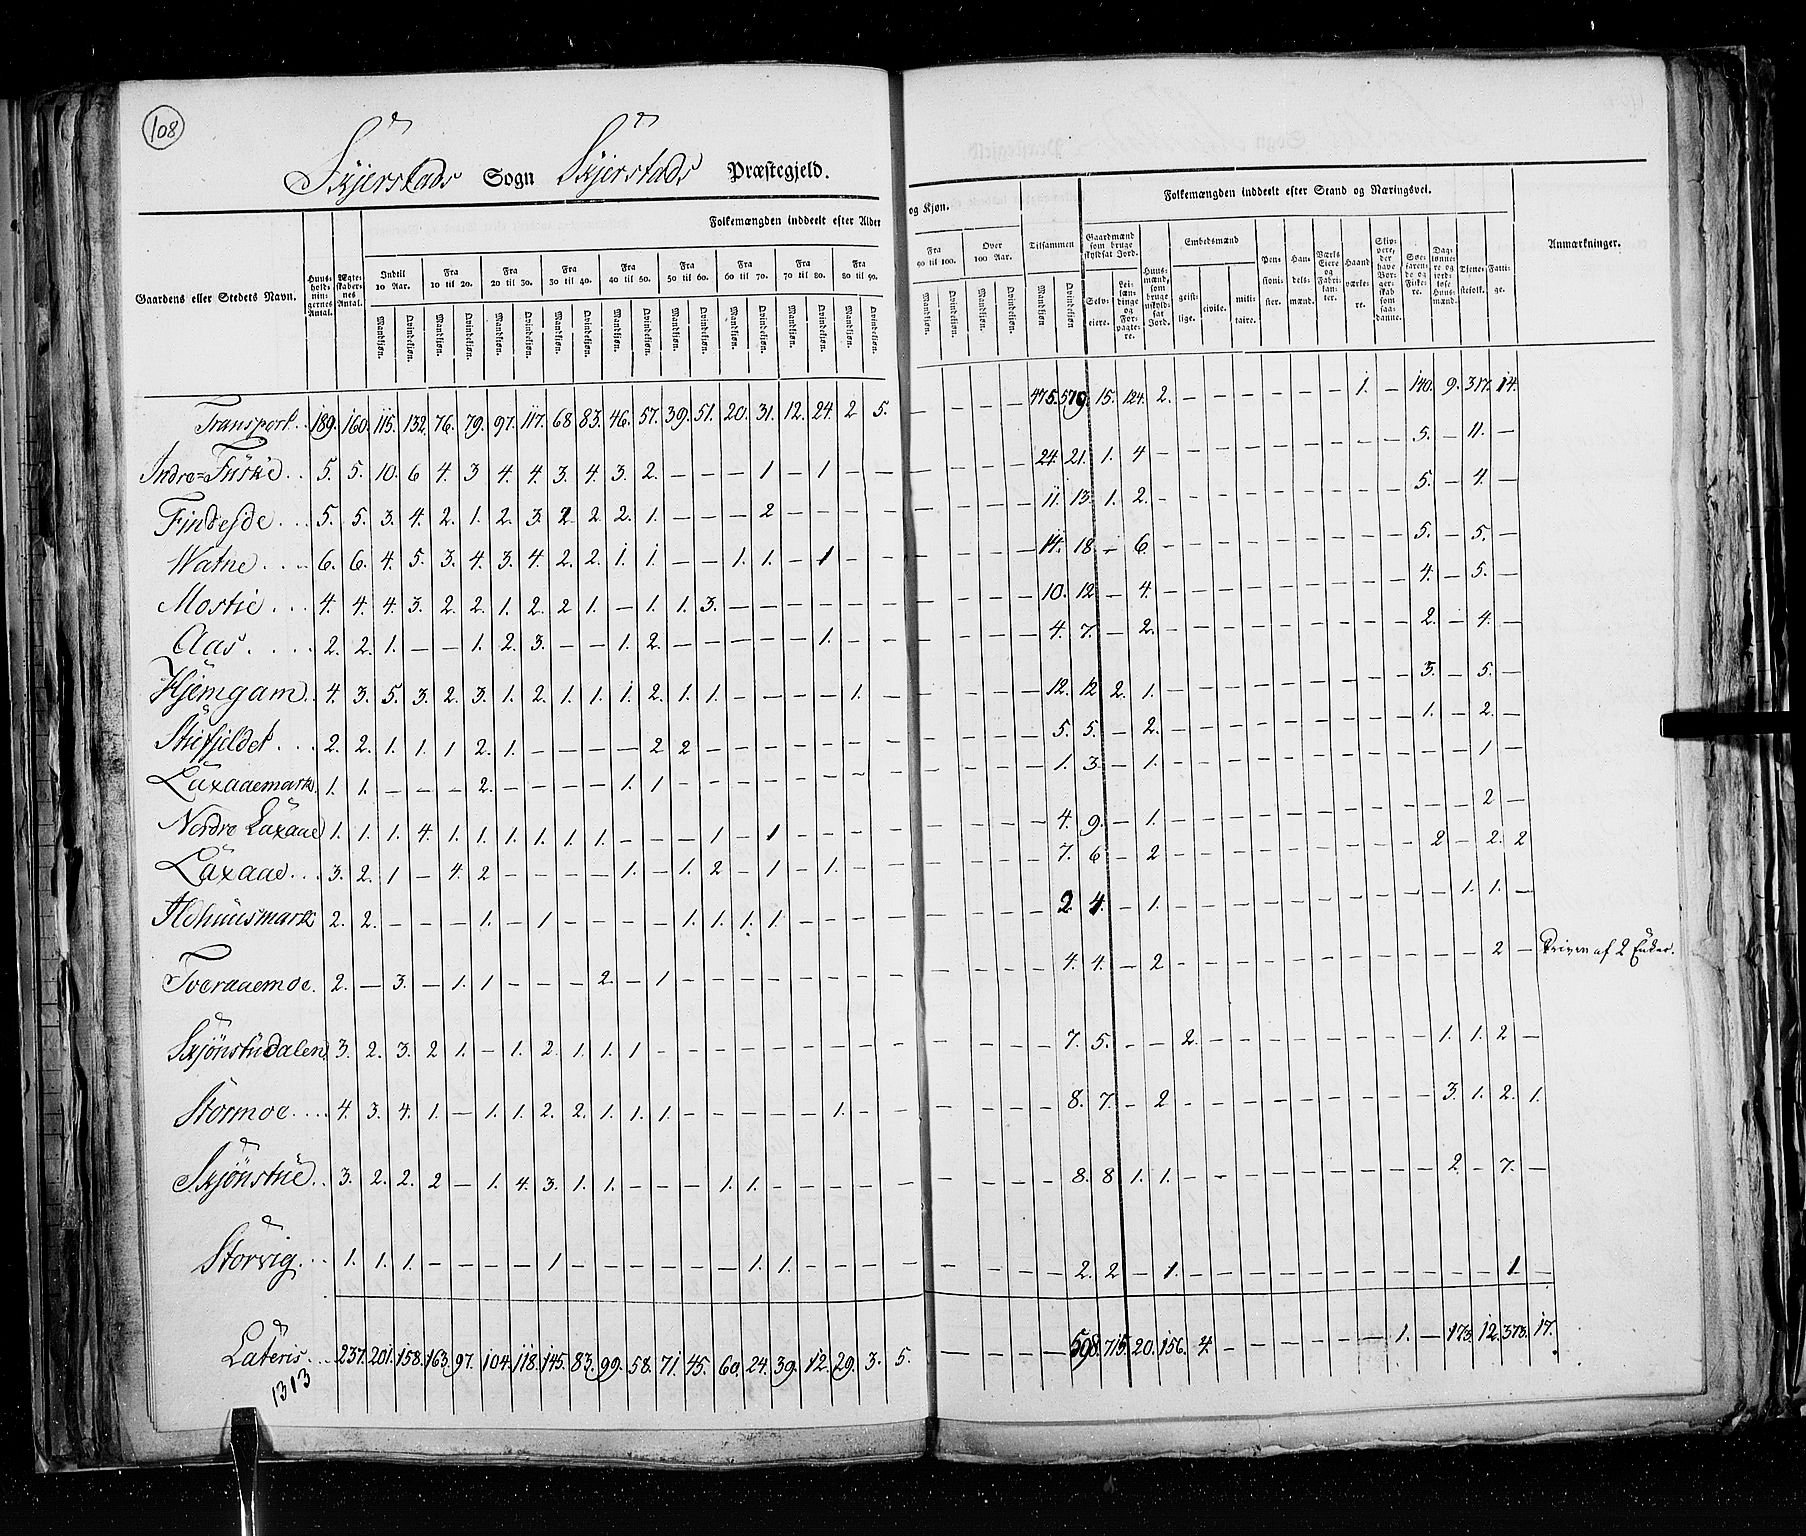 108
Skjerstads Sogn Skjerstads Præstegjeld.
Gaardens eller Stedets Navn. Huusholdningernes Antal. Ægteskabernes Antal. Folkemængden inddeelt efter Alder og Kjøn. Tilsammen Folkemængden inddeelt efter Stand og Næringsvei. Anmærkninger.
Indtil 10 Aar. Fra 10 til 20. Fra 20 til 30. Fra 30 til 40. Fra 40 til 50. Fra 50 til 60. Fra 60 til 70. Fra 70 til 80. Fra 80 til 90. Fra 90 til 100. Over 100 Aar.
Gaardmænd som bruge skyldsat Jord. Selveiere. Leilændinge og Forpagtere. Huusmænd, som bruge uskyldsat Jord. Embedsmænd geistlige. civile. militaire. Pensionister. Handelsmænd. Værks Eiere og Fabrikanter. Haandværkere. Skippere, der have Borgerskab som saadanne. Søefarende og Fiskere. Daglønnere og jordløse Huusmænd. Tjenestefolk. Fattige.
Mandkjøn. Qvindekjøn. Mandkjøn. Qvindekjøn. Mandkjøn. Qvindekjøn. Mandkjøn. Qvindekjøn. Mandkjøn. Qvindekjøn. Mandkjøn. Qvindekjøn. Mandkjøn. Qvindekjøn. Mandkjøn. Qvindekjøn. Mandkjøn. Qvindekjøn. Mandkjøn. Qvindekjøn. Mandkjøn. Qvindekjøn. Mandkjøn Qvindekjøn
Transport.. 189. 160. 115. 132. 76. 79. 97. 117. 68 83. 46. 57. 39. 51. 20. 31. 12. 24. 2 5. – – – – 475. 579. 15. 124. 2. – – – – – – 1. – 140. 9. 317. 14.
Indre=Fuske.. 5. 5. 10. 6 4. 3 4. 4. 3. 4. 3. 2. – – – 1 – 1. – – – – – – 24. 21. 1. 4 – – – – – – – – – 5. – 11. –
Findeide... 5. 5. 3. 4. 2. 1. 2. 3. 2 2. 2. 1. – – – 2 – – – – 11. 13. 1. 2. – – – – – – – – – 5. – 4. –
Watne.... 6. 6. 4. 5. 3. 4. 3. 4. 2. 2. 1. 1. – – 1. 1. – 1 – – – – – – 14. 18 – 6. – – – – – – – – – 5. – 5. –
Mostie... 4. 4. 4. 3. 2. 2. 1. 2. 2 1. – 1. 1. 3. – – – – – – – – – – 10. 12 – 4. – – – – – – – – – 4. – 5. –
Aas.... 2. 2. 1. – – 1. 2. 3. – – 1. 2. – – – – – 1. – – – – – – 4. 7. – 2. – – – – – – – – – 2. – 4. –
Hjemgam.. 4. 3. 5. 3. 2. 3. 1. 2. 1. 1. 1. 2. 1. 1. – – – – 1. – – – – – 12. 12 2. 1. – – – – – – – – – 3. – 5. –
Stiffjeldet... 2. 2. 1. 1. 1 2. 1. – – – – 2 2 – – – – – – – – – – – 5. 5. – 2. – – – – – – – – – 1. – 2. –
Laxaaemark. 1. 1. – – – 2. – – – – 1. 1 – – – – – – – – – – – – 1. 3. – 1. – – – – – – – – – – – 1 –
Nordre Laxaae 1. 1. 1. 4. 1. 1. 1. 1. 1. 1. – – – 1 – 1 – – – – – – – – 4. 9. – 1. – – – – – – – – – – – 2 –
Laxaae... 3. 2. 1 – 4. 2 – – – – 1. – 1. 2 – 1 – 1. – – – – – – 7. 6 – 2 – – – – – – – – – 2 – 2. 2
2. 2. – – – 1. – 1 – – – – 1. 1. 1. 1. – – – – – – – – 2. 4. – 1. – – – – – – – – – – 1. 1. –
Tveraaemoe. 2. – 3. – 1. 1 – – – 2. – 1 – – – – – – – – – – – – 4. 4. – 2 – – – – – – – – – – – 2 – Driven af 2 Enker.
Skjønstudalen. 3. 2. 3. 2 1. – 1. 2. 1. 1. 1 – – – – – – – – – – – – – 7. 5. – – 2. – – – – – – – – 1. 1. 2 –
Stormoe.... 4. 3. 4. 1. – 1. 1. 2. 2. 1. 1. 1. – – – – – 1. – – – – – – 8. 7. – 2 – – – – – – – – – 3. 1. 2. 1.
Skjønstue.. 3. 2. 2. 2 – 1. 4. 3. 1. 1. – – – 1. 1. – – – – – – – – – 8. 8 1. 1. – – – – – – – – – 2. – 7. –
Storvig... 1. 1. 1. – – – – 1 – – – – – – 1. 1. – – – – – – – – 2. 2. – 1. – – – – – – – – – – – 1 –
Lateris... 237. 201. 158. 163. 97. 104. 118. 145. 83. 99. 58. 71. 45. 60. 24. 39. 12. 29. 3. 5. – – – – 598. 715. 20. 156. 4. – – – – – – 1. – 173. 12. 373. 17.
1313